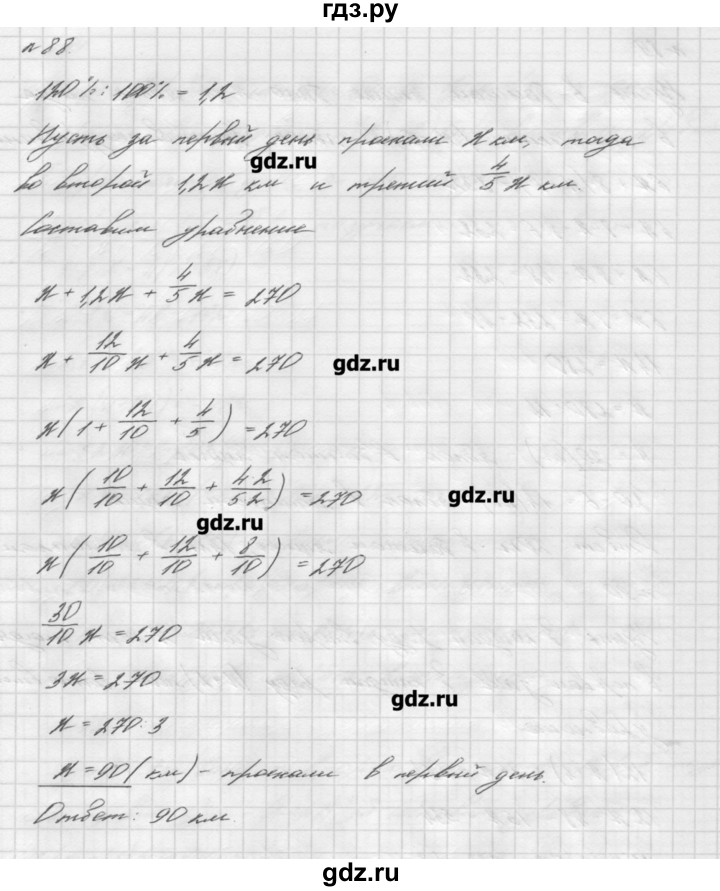 гдз.ру
n 88
120% : 100% = 1,2
Пусть за первый день проехали x км, тогда
gdz.ru
во второй 1,2x км и третий 4/5 x км.
Составим уравнение
x + 1,2x + 4/5 x = 270
x + 12/10 x + 4/5 x = 270
gdz.ru
x(1 + 12/10 + 4/5) = 270
x(10/10 + 12/10 + 4·2/5·2) = 270
gdz.ru
gdz.ru
x(10/10 + 12/10 + 8/10) = 270
30/10 x = 270
3x = 270
gdz.ru
x = 270 : 3
x = 90 (км) - проехали в первый день.
Ответ: 90 км.
gdz.ru